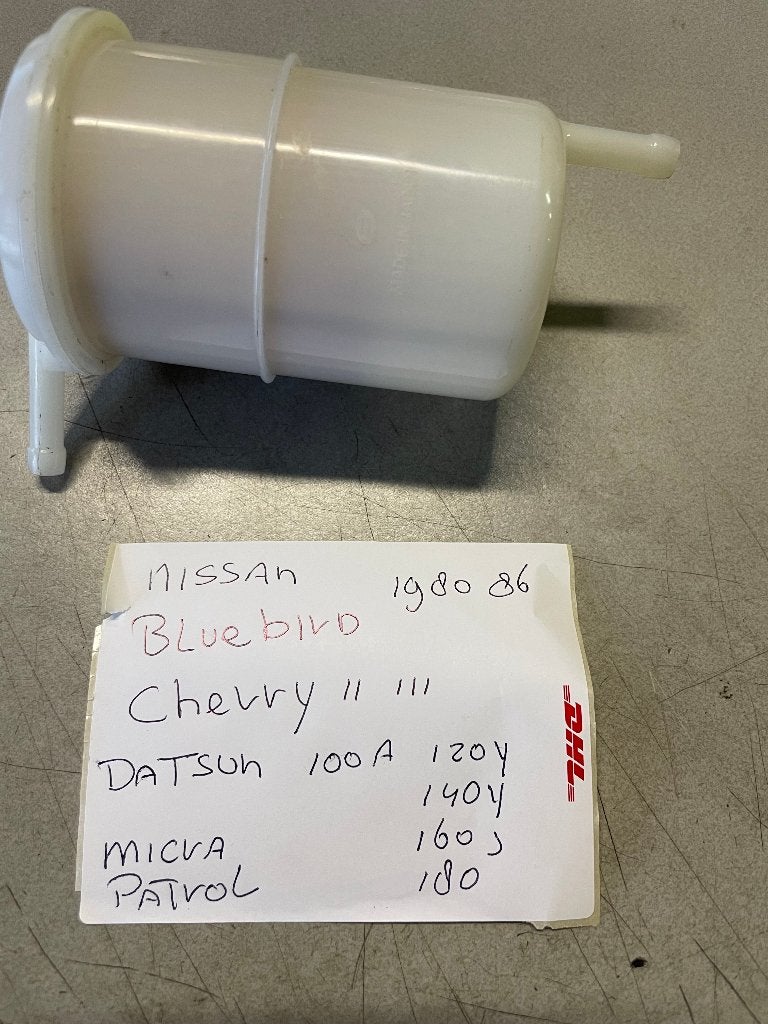 NISSAN 1980 86
Bluebird
Cherry II III
DATSUN 100A 120Y
140Y
MICRA 160J
PATROL 180
DHL